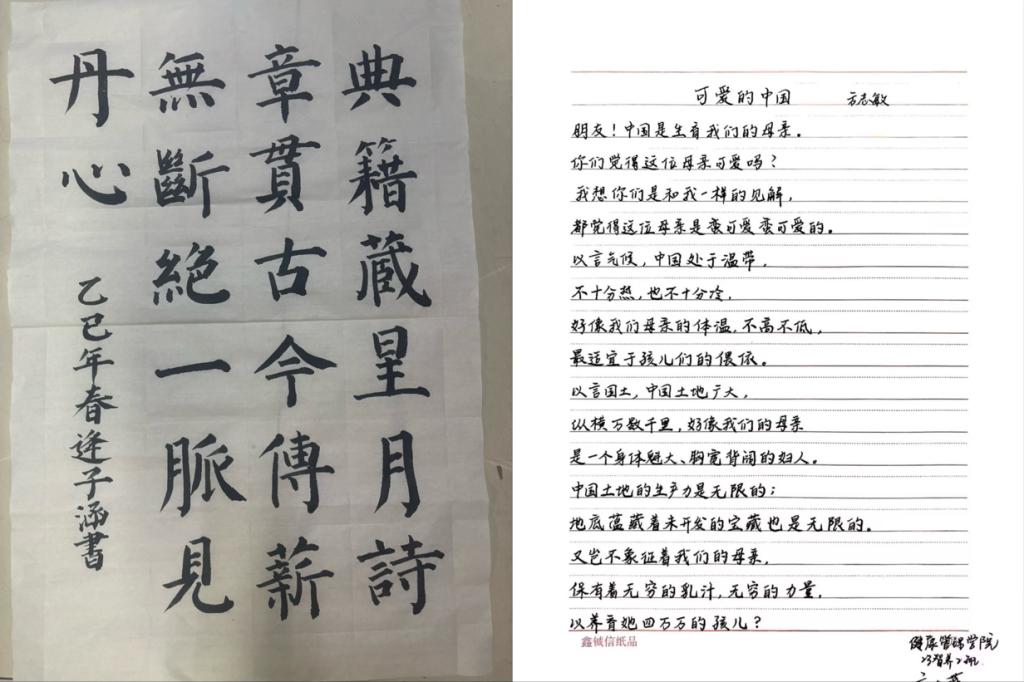 典籍藏星月詩
章貫古今傳薪
無斷絕一脈見
丹心
乙巳年春逄子涵書
可爱的中国 方志敏
朋友！中国是生育我们的母亲。
你们觉得这位母亲可爱吗？
我想你们是和我一样的见解，
都觉得这位母亲是蛮可爱蛮可爱的。
以言气候，中国处于温带，
不十分热，也不十分冷，
好像我们母亲的体温，不高不低，
最适宜于孩儿们的偎依。
以言国土，中国土地广大，
纵横万数千里，好像我们的母亲
是一个身体魁大、胸宽背阔的妇人。
中国土地的生产力是无限的；
地底蕴藏着未开发的宝藏也是无限的。
又岂不象征着我们的母亲，
保有着无穷的乳汁，无穷的力量，
以养育她四万万的孩儿？
鑫铖信纸品
健康管理学院
23智养2班